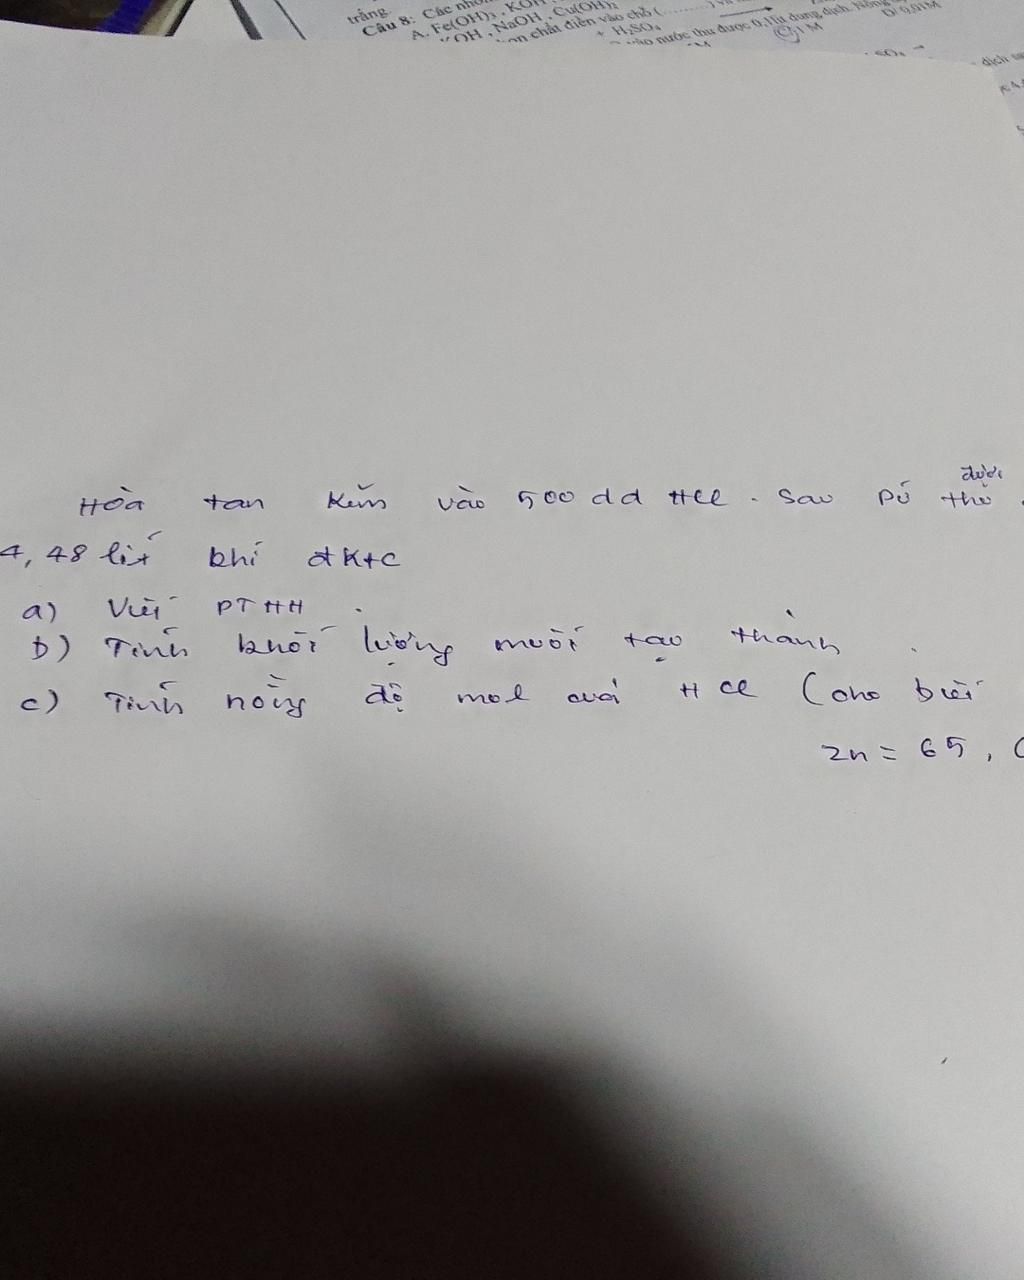 trắng
Câu 8: Các nhóm
A. Fe(OH)3, KOH
KOH, NaOH, Cu(OH)2
chất điền vào chỗ (.........)
+ H2SO4
vào nước thu được 0,1lít dung dịch. Nồng
1 M
D/ 0,01M
SO4 →
dịch
được
Hòa tan Kẽm vào 500 dd HCl. Sau pứ thu
4,48 lít khí đKtC
a) Viết PTHH.
b) Tính khối lượng muối tạo thành.
c) Tính nồng độ mol của HCl (cho biết
Zn = 65,